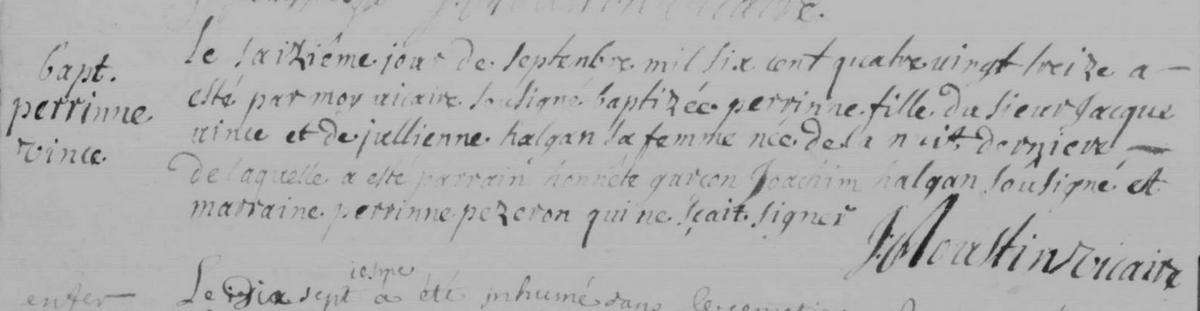 bapt.
perrinne
vince
Le saizième jour de septenbre mil six cent quatre vingt treize a
esté par moy vicaire sousigné baptizée perrinne fille du sieur Jacque
vince et de jullienne halgan sa femme née de la nuit derniere
de laquelle a esté parrain honnête garçon Joachim halgan sousigné et
marraine perrinne pezeron qui ne sçait signer
vicaire
enter
Le dix sept ieme a été inhumé dans le